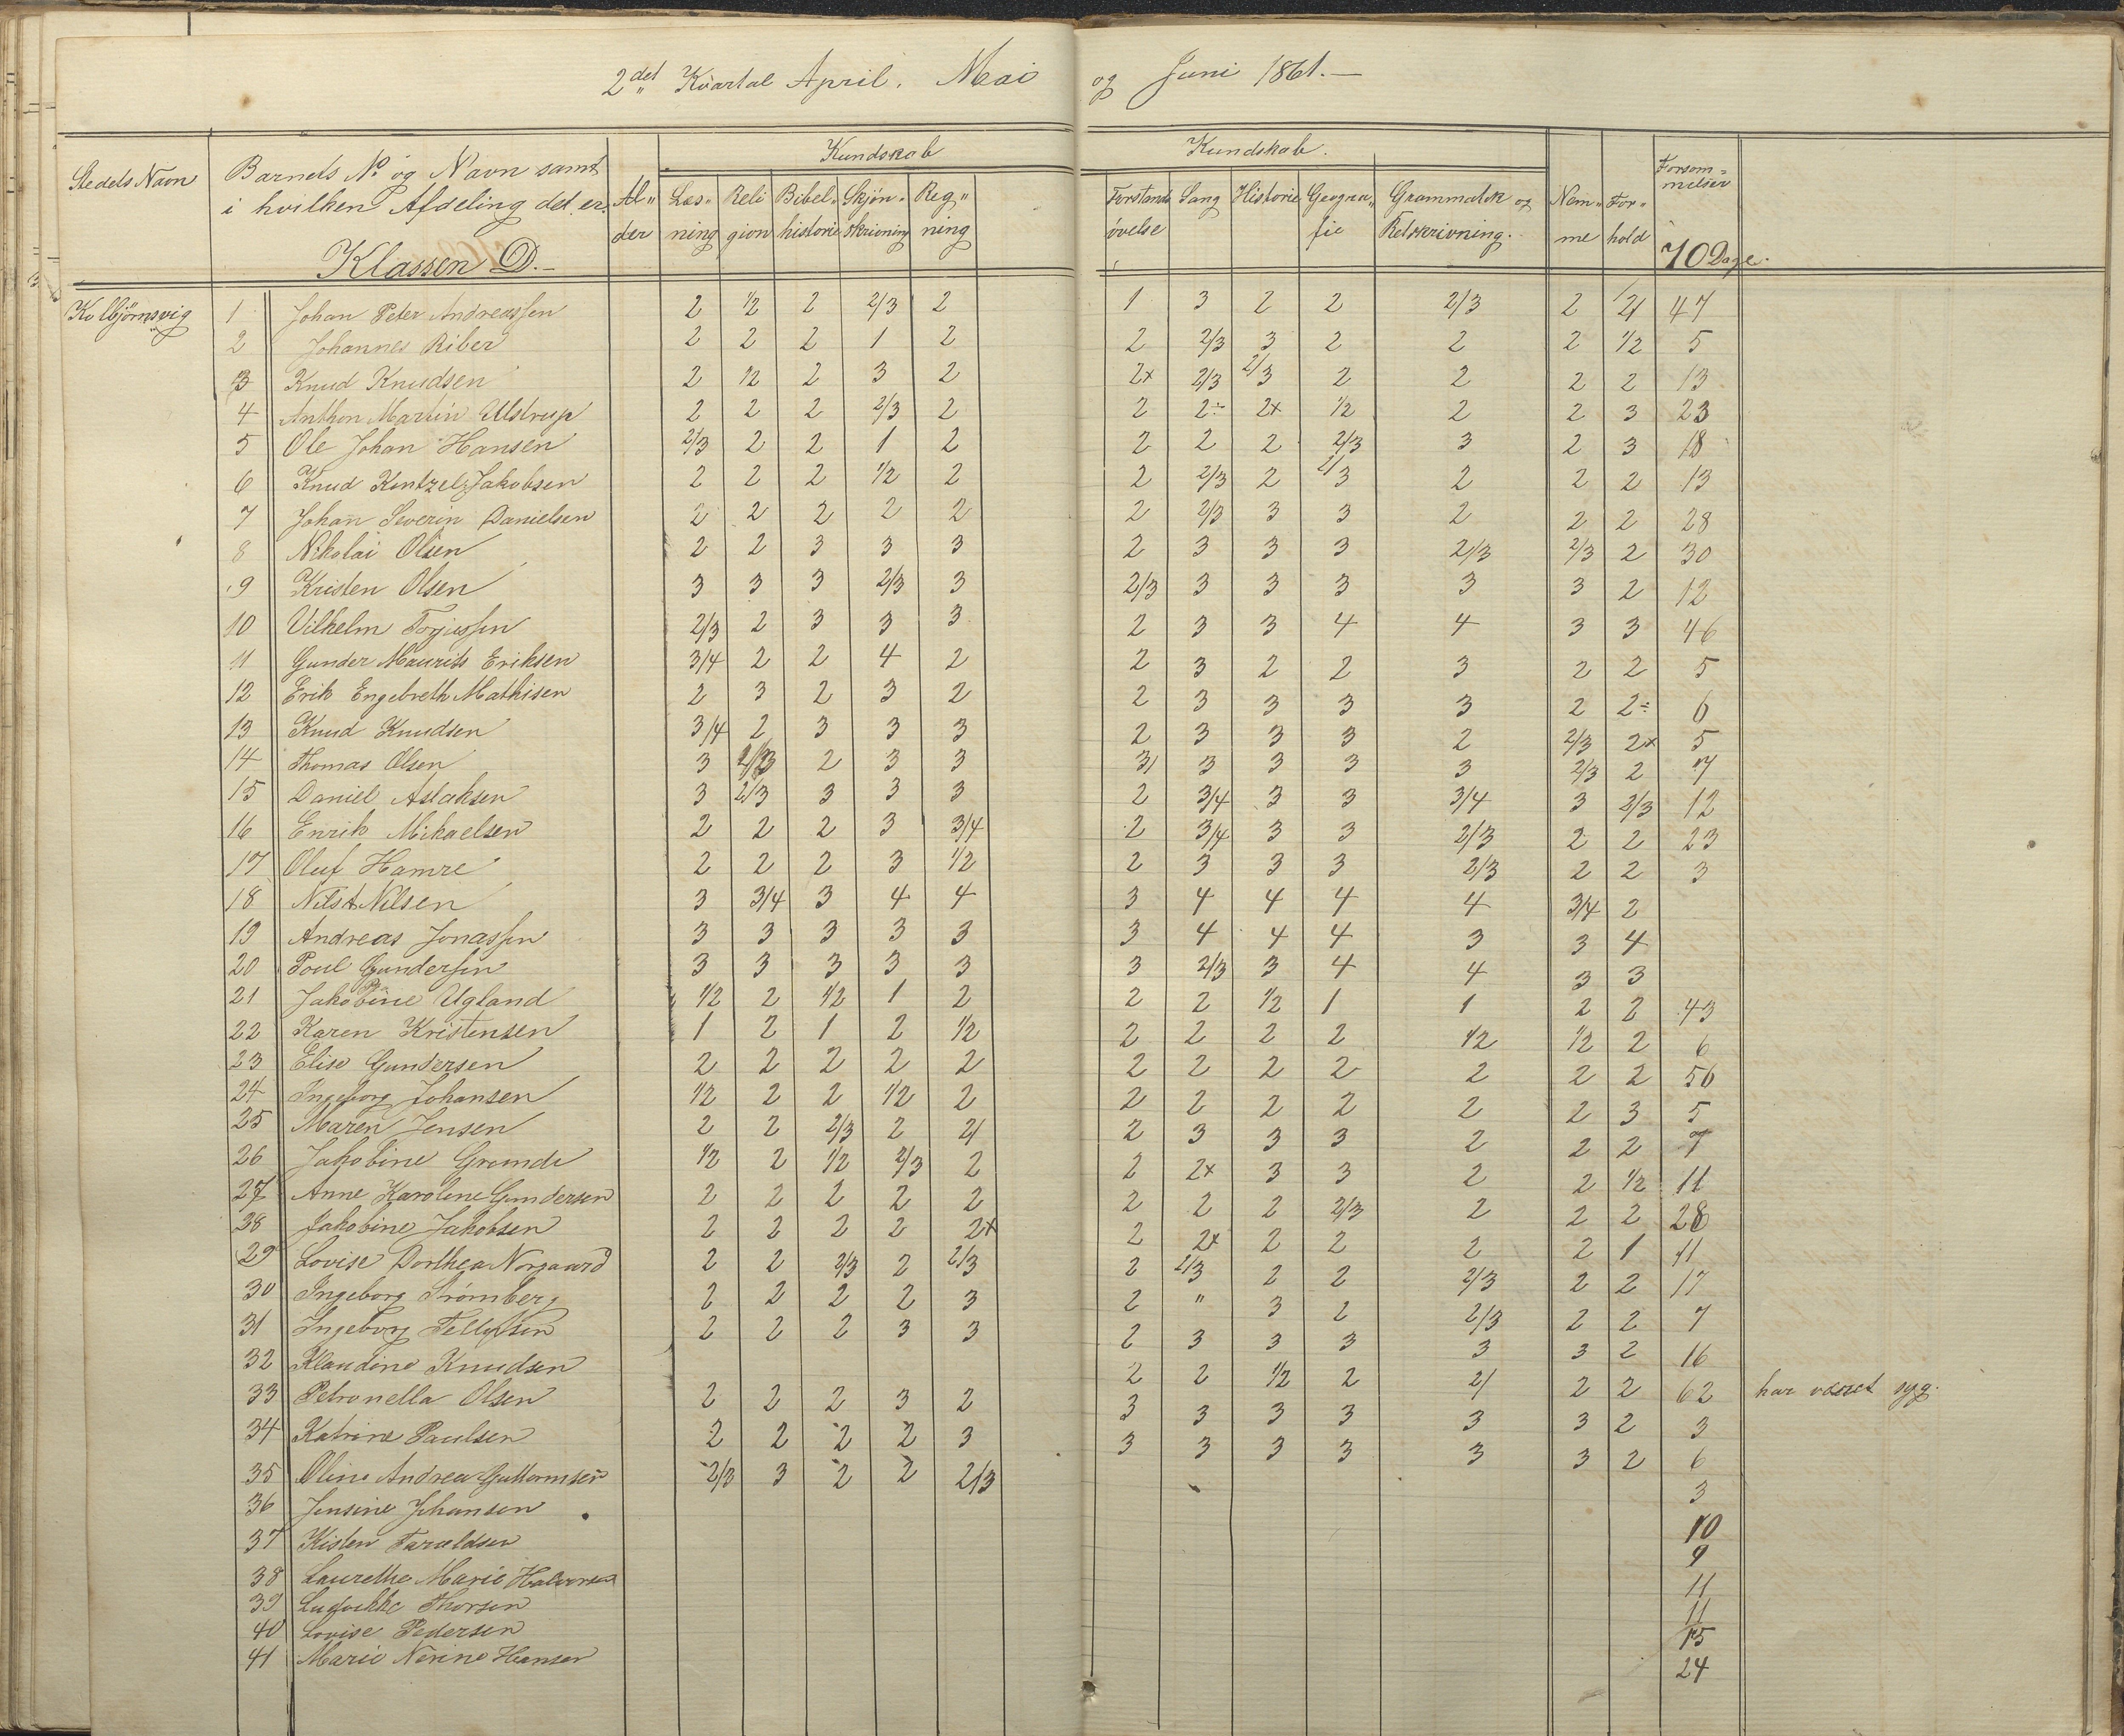 2det Kvartal April. Mai og Juni 1861.—
Stedets Navn Barnets No og Navn samt i hvilken Afdeling det er. Klassen D.— Al„der Kundskab Læs„ning Religion Bibel„historie Skjøn„skrivning Reg„ning Kundskab. Forstands øvelse Sang Historie Geografie Grammatik og Retskrivning. Nem„me For„hold Forsømmelser 70 Dage.
Kolbjørnsvig 1 Johan Peter Andreassen 2 1/2 2 2/3 2 1 3 2 2 2/3 2 2/1 47
2 Johannes Riber 2 2 2 1 2 2 2/3 3 2 2 2 1/2 5
3 Knud Knudsen 2 1/2 2 3 2 2x 2/3 2/3 2 2 2 2 13
4 Anthon Martin Ulstrup 2 2 2 2/3 2 2 2÷ 2x 1/2 2 2 3 23
5 Ole Johan Hansen 2/3 2 2 1 2 2 2 2 2/3 3 2 3 18
6 Knud Kentzel Jakobsen 2 2 2 1/2 2 2 2/3 2 2/3 2 2 2 13
7 Johan Severin Danielsen 2 2 2 2 2 2 2/3 3 3 2 2 2 28
8 Nikolai Olsen 2 2 3 3 3 2 3 3 3 2/3 2/3 2 30
9 Kristen Olsen 3 3 3 2/3 3 2/3 3 3 3 3 3 2 12
10 Vilhelm Torjussen 2/3 2 3 3 3 2 3 3 4 4 3 3 46
11 Gunder Maurits Eriksen 3/4 2 2 4 2 2 3 2 2 3 2 2 5
12 Erik Engebreth Mathisen 2 3 2 3 2 2 3 3 3 3 2 2÷ 6
13 Knud Knudsen 3/4 2 3 3 3 2 3 3 3 2 2/3 2x 5
14 Thomas Olsen 3 2/3 2 3 3 3/ 3 3 3 3 2/3 2 7
15 Daniel Aslaksen 3 2/3 3 3 3 2 3/4 3 3 3/4 3 2/3 12
16 Enrik Mikaelsen 2 2 2 3 3/4 2 3/4 3 3 2/3 2 2 23
17 Oluf Hamre 2 2 2 3 1/2 2 3 3 3 2/3 2 2 3
18 Nils A Nilsen 3 3/4 3 4 4 3 4 4 4 4 3/4 2
19 Andreas Jonassen 3 3 3 3 3 3 4 4 4 3 3 4
20 Poul Gundersen 3 3 3 3 3 3 2/3 3 4 4 3 3
21 Jakobine Ugland 1/2 2 1/2 1 2 2 2 1/2 1 1 2 2 43
22 Karen Kristensen 1 2 1 2 1/2 2 2 2 2 1/2 1/2 2 6
23 Elise Gundersen 2 2 2 2 2 2 2 2 2 2 2 2 56
24 Ingeborg Johansen 1/2 2 2 1/2 2 2 2 2 2 2 2 3 5
25 Maren Jensen 2 2 2/3 2 2/ 2 3 3 3 2 2 2 7
26 Jakobine Grunde 1/2 2 1/2 2/3 2 2 2x 3 3 2 2 1/2 11
27 Anne Karoline Gundersen 2 2 2 2 2 2 2 2 2/3 2 2 2 28
28 Jakobine Jakobsen 2 2 2 2 2x 2 2x 2 2 2 2 1 11
29 Lovise Dorthea Norgaard 2 2 2/3 2 2/3 2 2/3 2 2 2/3 2 2 17
30 Ingeborg Strømberg 2 2 2 2 3 2 „ 3 2 2/3 2 2 7
31 Ingeborg Tellefsen 2 2 2 3 3 2 3 3 3 3 3 2 16
32 Klaudine Knudsen 2 2 1/2 2 2/ 2 2 62 har været syg.
33 Petronella Olsen 2 2 2 3 2 3 3 3 3 3 3 2 3
34 Katrine Paulsen 2 2 2 2 3 3 3 3 3 3 3 2 6
35 Oline Andrea Guttormsen 2/3 3 2 2 2/3 3
36 Jensine Johansen 10
37 Kisten Taraldsen 9
38 Laurethe Marie Halvorsen 11
39 Ludvikke Thorsen 11
40 Lovise Pedersen 15
41 Marie Nerine Hansen 24